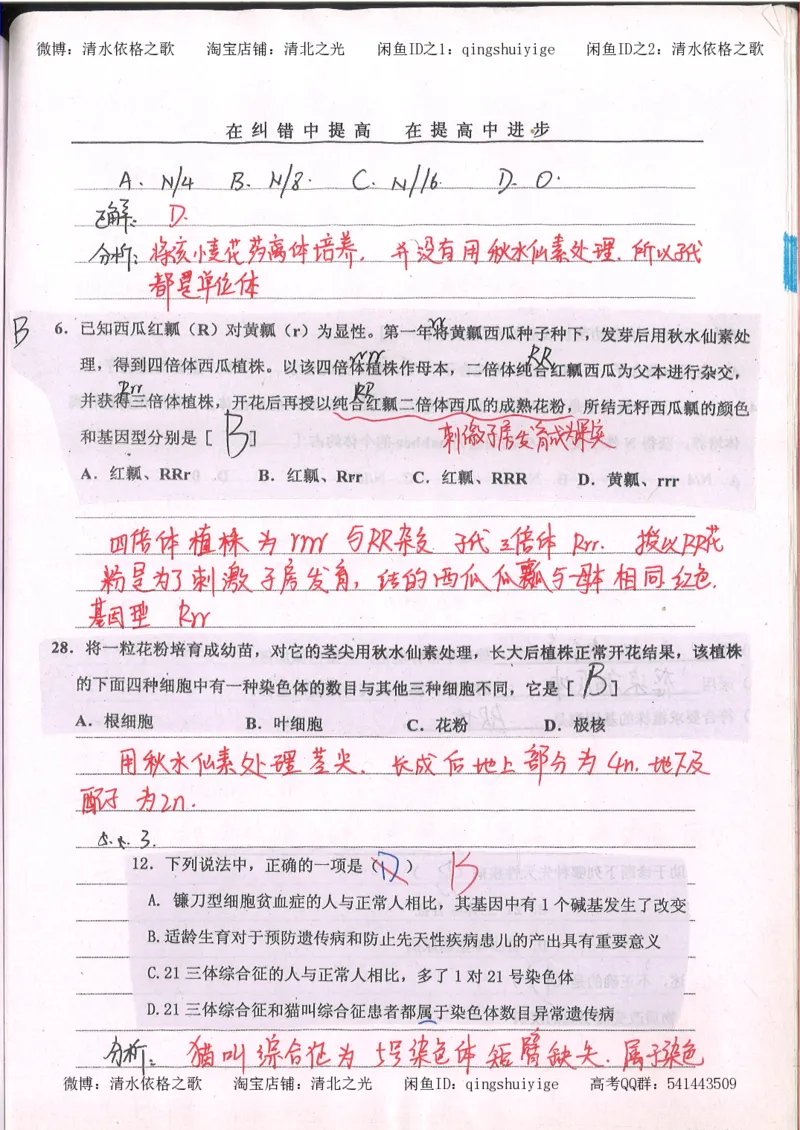 微博：清水依格之歌 淘宝店铺：清北之光 闲鱼ID之1：qingshuiyige 闲鱼ID之2：清水依格之歌
在纠错中提高 在提高中进步
A. N/4 B. N/8. C. N/16. D. 0.
正解：D.
分析：将该小麦花药离体培养，并没有用秋水仙素处理，所以子代
都是单倍体
B 6．已知西瓜红瓤（R）对黄瓤（r）为显性。第一年将黄瓤西瓜种子种下，发芽后用秋水仙素处
rr
理，得到四倍体西瓜植株。以该四倍体植株作母本，二倍体纯合红瓤西瓜为父本进行杂交，
rrrr RR
并获得三倍体植株，开花后再授以纯合红瓤二倍体西瓜的成熟花粉，所结无籽西瓜瓤的颜色
Rrr RR
和基因型分别是［ B ］ 刺激子房发育成果实
A．红瓤、RRr B．红瓤、Rrr C．红瓤、RRR D．黄瓤、rrr
四倍体植株为rrrr与RR杂交 子代三倍体Rrr. 授以RR花
粉是为了刺激子房发育，结的西瓜瓜瓤与母体相同红色.
基因型 Rrr
28．将一粒花粉培育成幼苗，对它的茎尖用秋水仙素处理，长大后植株正常开花结果，该植株
的下面四种细胞中有一种染色体的数目与其他三种细胞不同，它是［ B ］
A．根细胞 B．叶细胞 C．花粉 D．极核
用秋水仙素处理茎尖. 长成后地上部分为4n. 地下及
配子为2n.
12．下列说法中，正确的一项是（D） B
A. 镰刀型细胞贫血症的人与正常人相比，其基因中有1个碱基发生了改变
B.适龄生育对于预防遗传病和防止先天性疾病患儿的产出具有重要意义
C.21三体综合征的人与正常人相比，多了1对21号染色体
D.21三体综合征和猫叫综合征患者都属于染色体数目异常遗传病
分析：猫叫综合征为5号染色体短臂缺失. 属于染色
微博：清水依格之歌 淘宝店铺：清北之光 闲鱼ID：qingshuiyige 高考QQ群：541443509